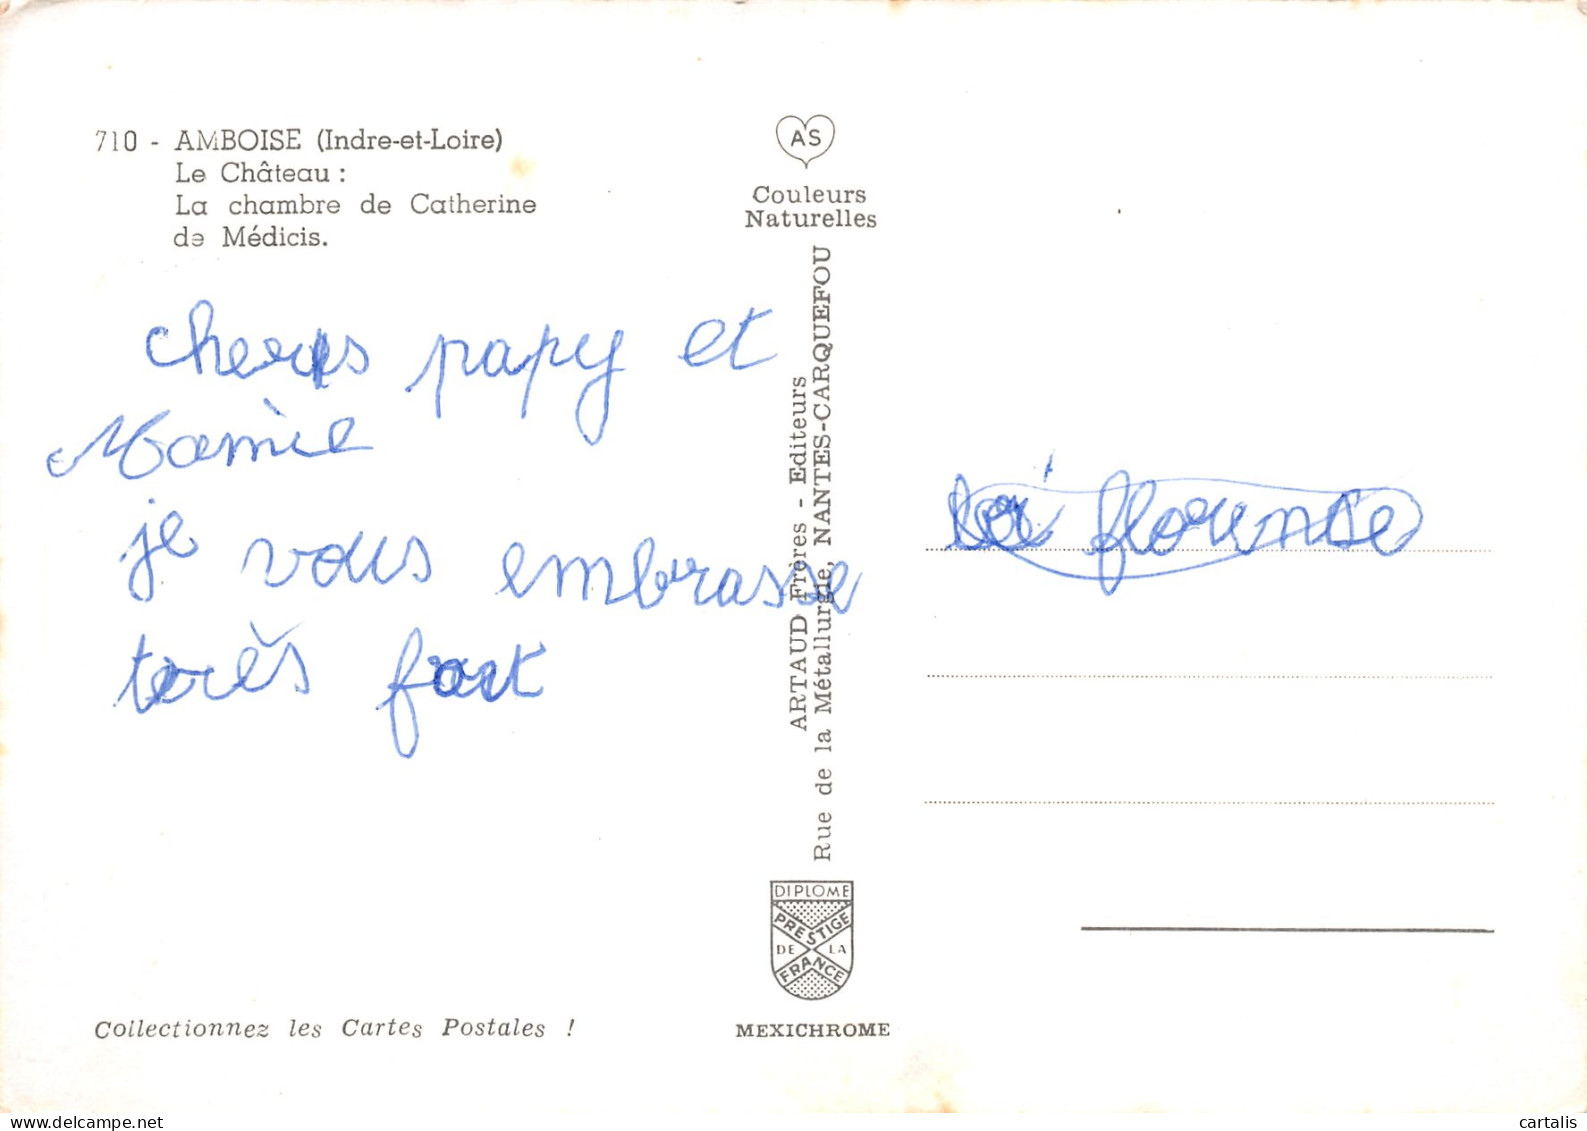 710 - AMBOISE (Indre-et-Loire)
Le Château :
La chambre de Catherine
de Médicis.
chers papy et
Mamie
je vous embrasse
très fort
AS
Couleurs
Naturelles
ARTAUD Frères - Editeurs
Rue de la Métallurgie, NANTES-CARQUEFOU
florence
DIPLOME
PRESTIGE
DE LA
FRANCE
MEXICHROME
Collectionnez les Cartes Postales !
delcampe.net
cartalis